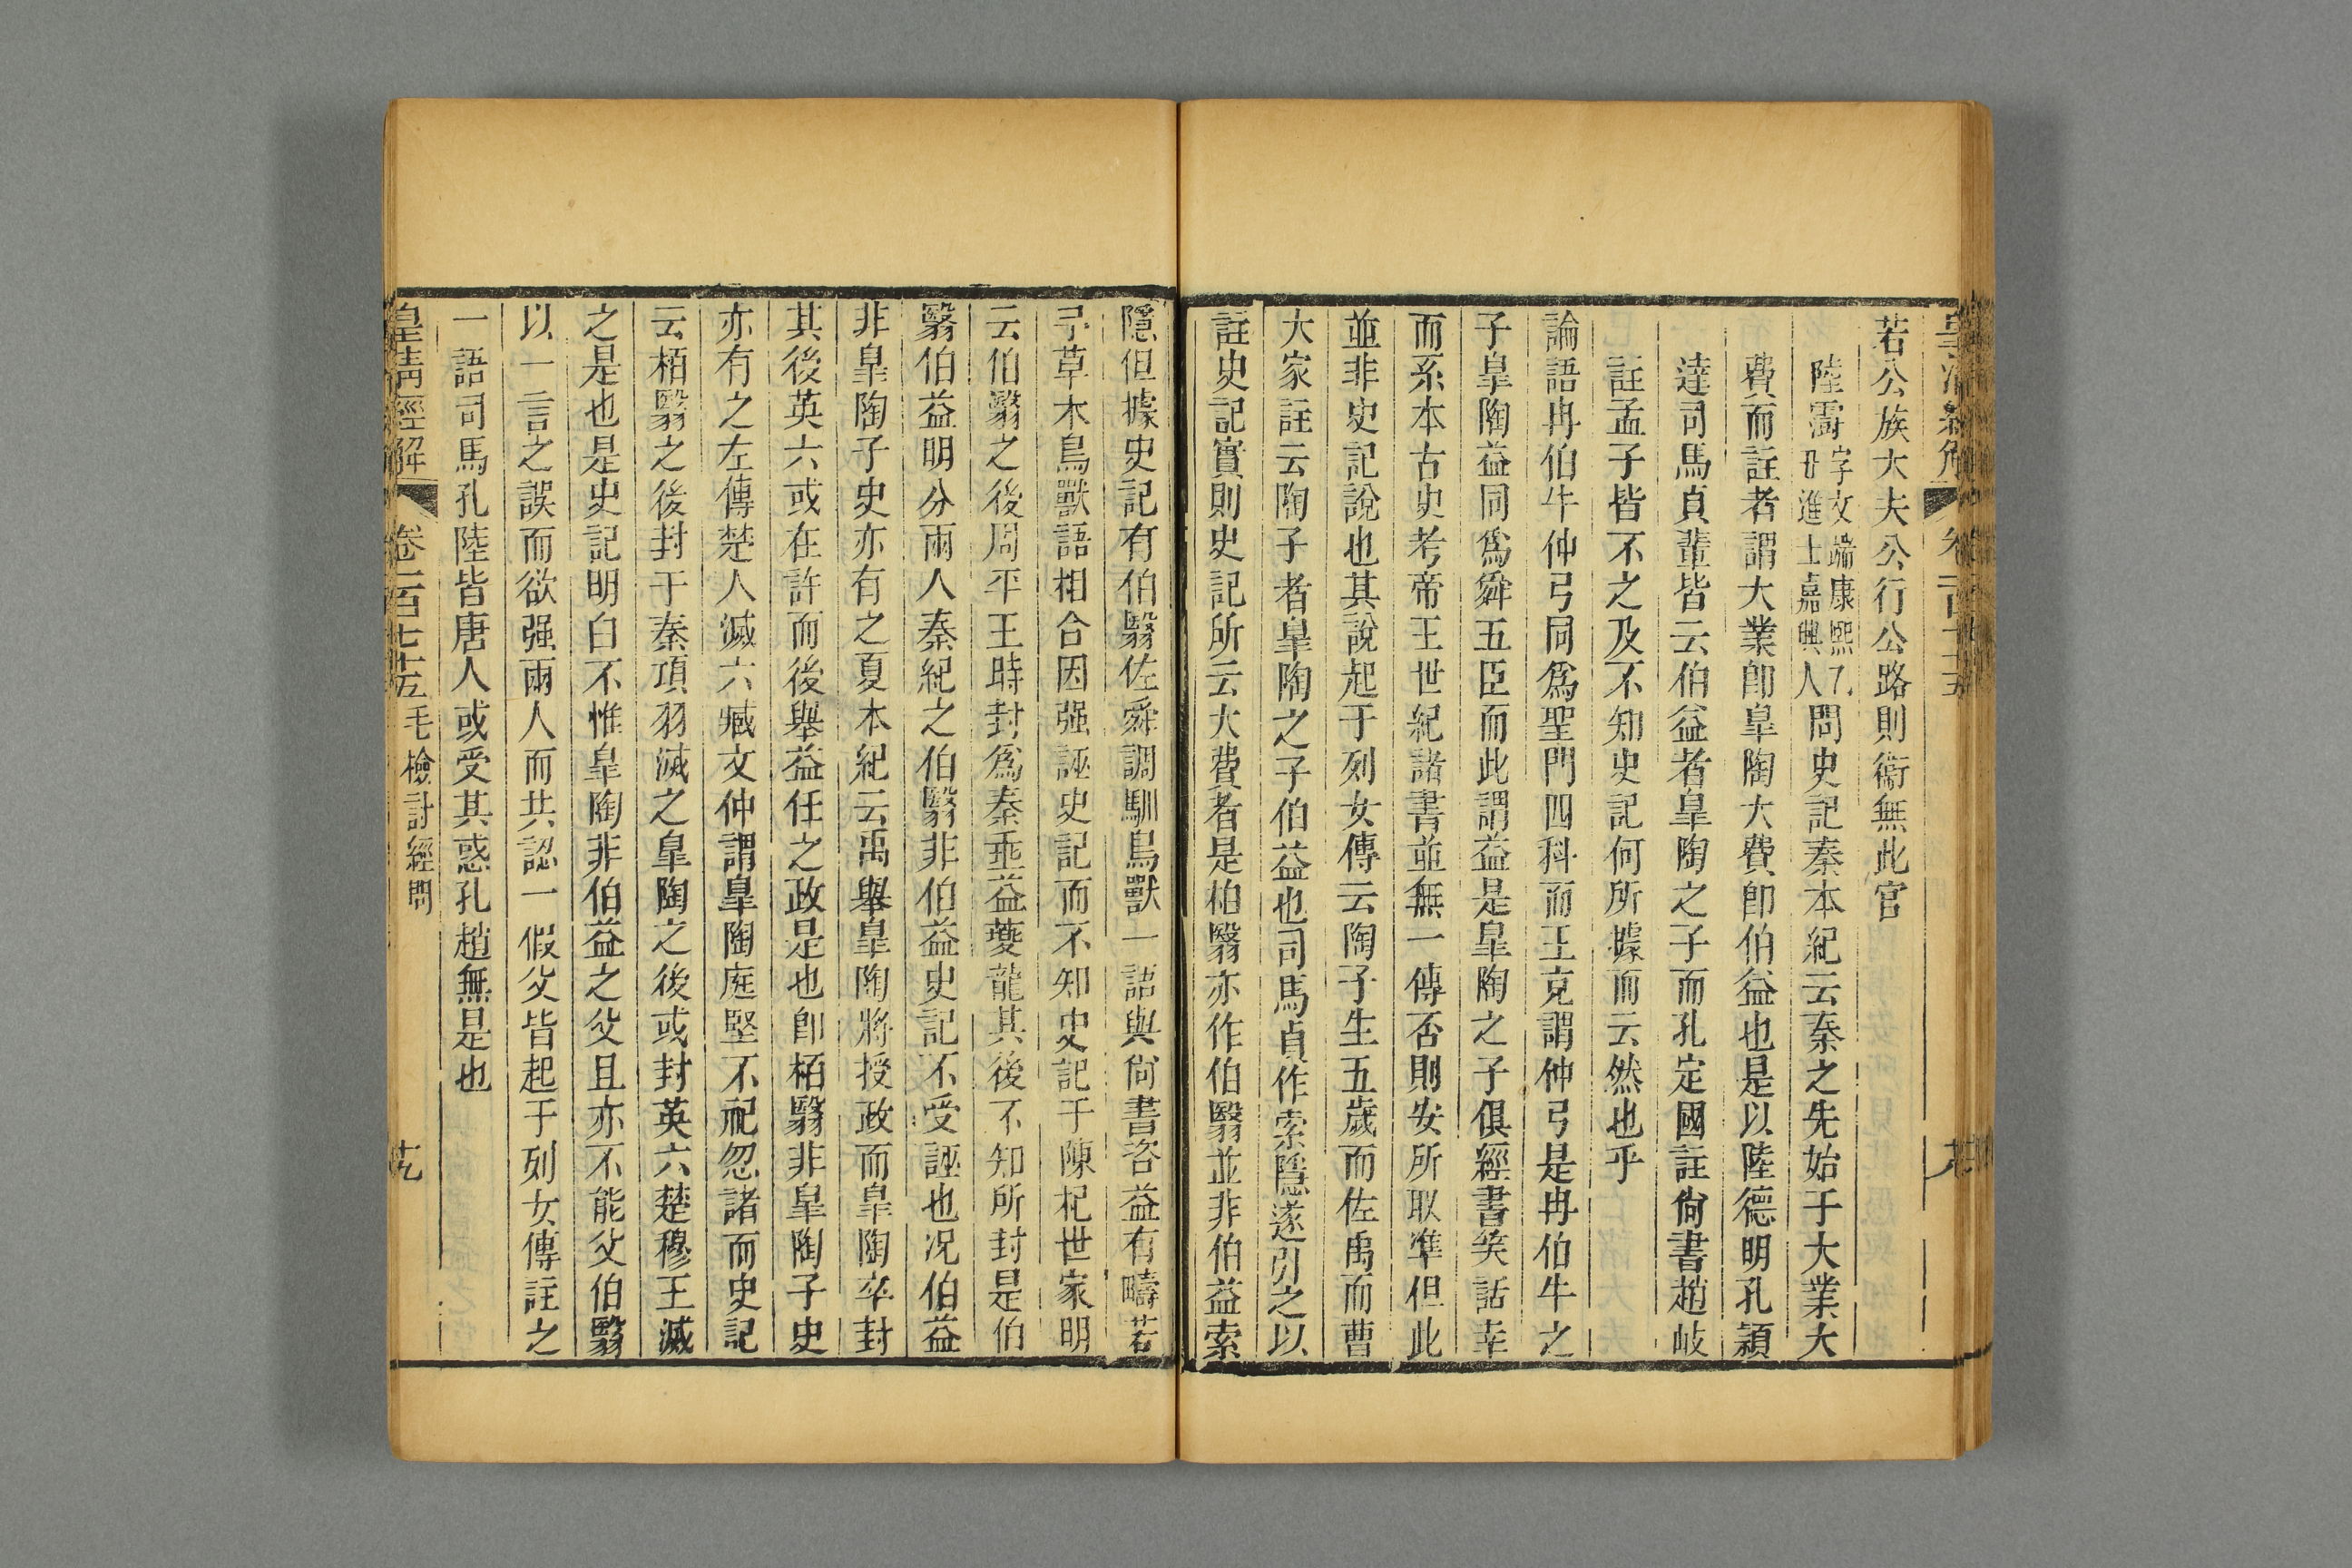 若公族大夫公行公路則衞無此官
陸霨字文端康熙乙丑進士嘉興人問史記秦本紀云秦之先始于大業大
費而註者謂大業卽臯陶大費卽伯益也是以陸德明孔穎
達司馬貞輩皆云伯益者臯陶之子而孔定國註尙書趙岐
註孟子皆不之及不知史記何所據而云然也乎
論語冉伯牛仲弓同爲聖門四科而王充謂仲弓是冉伯牛之
子臯陶益同爲舜五臣而此謂益是臯陶之子俱經書笑話幸
而系本古史考帝王世紀諸書並無一傳否則安所取準但此
並非史記說也其說起于列女傳云陶子生五歲而佐禹而曹
大家註云陶子者臯陶之子伯益也司馬貞作索隱遂引之以
註史記實則史記所云大費者是柏翳亦作伯翳並非伯益索
隱但據史記有伯翳佐舜調馴鳥獸一語與尙書咨益有疇若
予草木鳥獸語相合因强誣史記而不知史記于陳杞世家明
云伯翳之後周平王時封爲秦垂益夔龍其後不知所封是伯
翳伯益明分兩人秦紀之伯翳非伯益史記不受誣也况伯益
非臯陶子史亦有之夏本紀云禹舉臯陶將授政而臯陶卒封
其後英六或在許而後舉益任之政是也卽栢翳非臯陶子史
亦有之左傳楚人滅六臧文仲謂臯陶庭堅不祀忽諸而史記
云栢翳之後封于秦項羽滅之臯陶之後或封英六楚穆王滅
之是也是史記明白不惟臯陶非伯益之父且亦不能父伯翳
以一言之誤而欲强兩人而共認一假父皆起于列女傳註之
一語司馬孔陸皆唐人或受其惑孔趙無是也
皇淸經解 卷一百七十五 毛檢討經問 十九